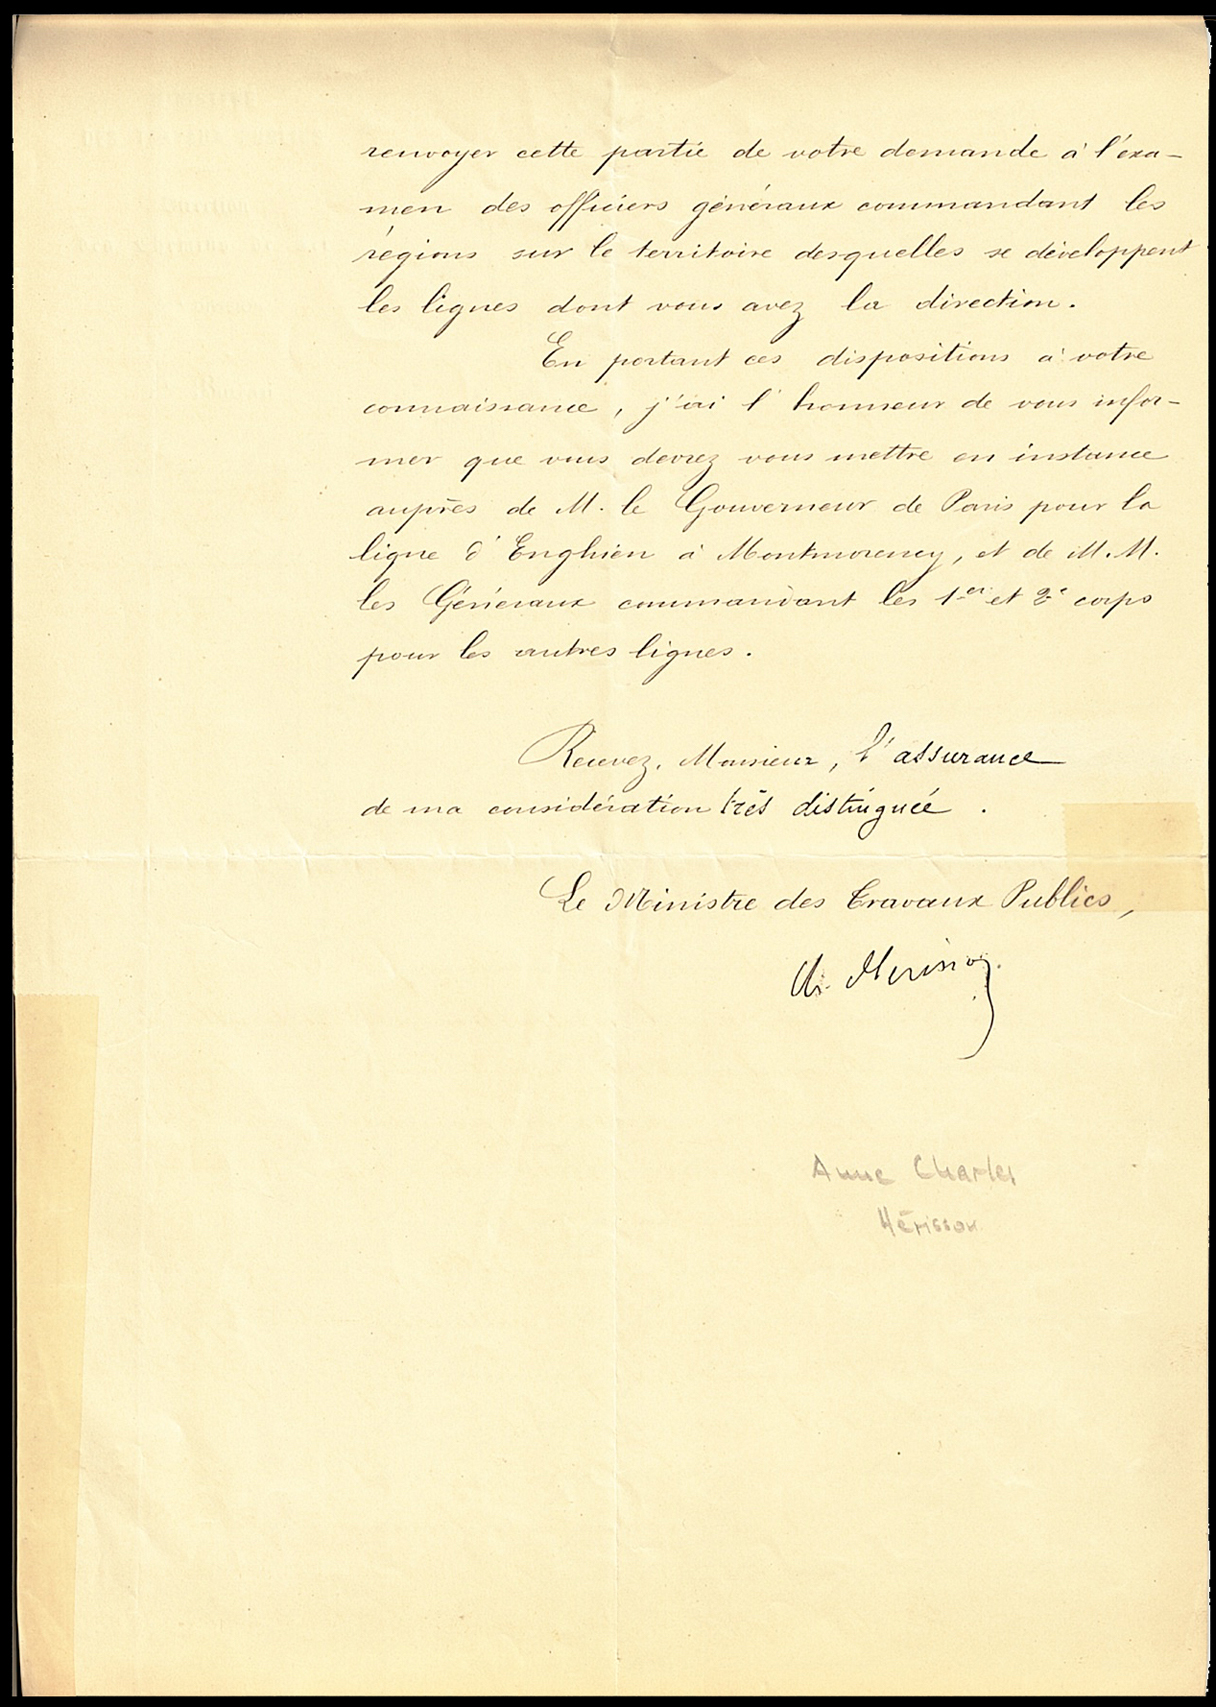 renvoyer cette partie de votre demande à l'exa-
men des officiers généraux commandant les
régions sur le territoire desquelles se développent
les lignes dont vous avez la direction.
En portant ces dispositions à votre
connaissance, j'ai l'honneur de vous infor-
mer que vous devrez vous mettre en instance
auprès de M. le Gouverneur de Paris pour la
ligne d'Enghien à Montmorency, et de M.M.
les Généraux commandant les 1er et 2e corps
pour les autres lignes.
Recevez, Monsieur, l'assurance
de ma considération très distinguée.
Le Ministre des Travaux Publics,
Ch. Hérisson
Anne Charles
Hérisson